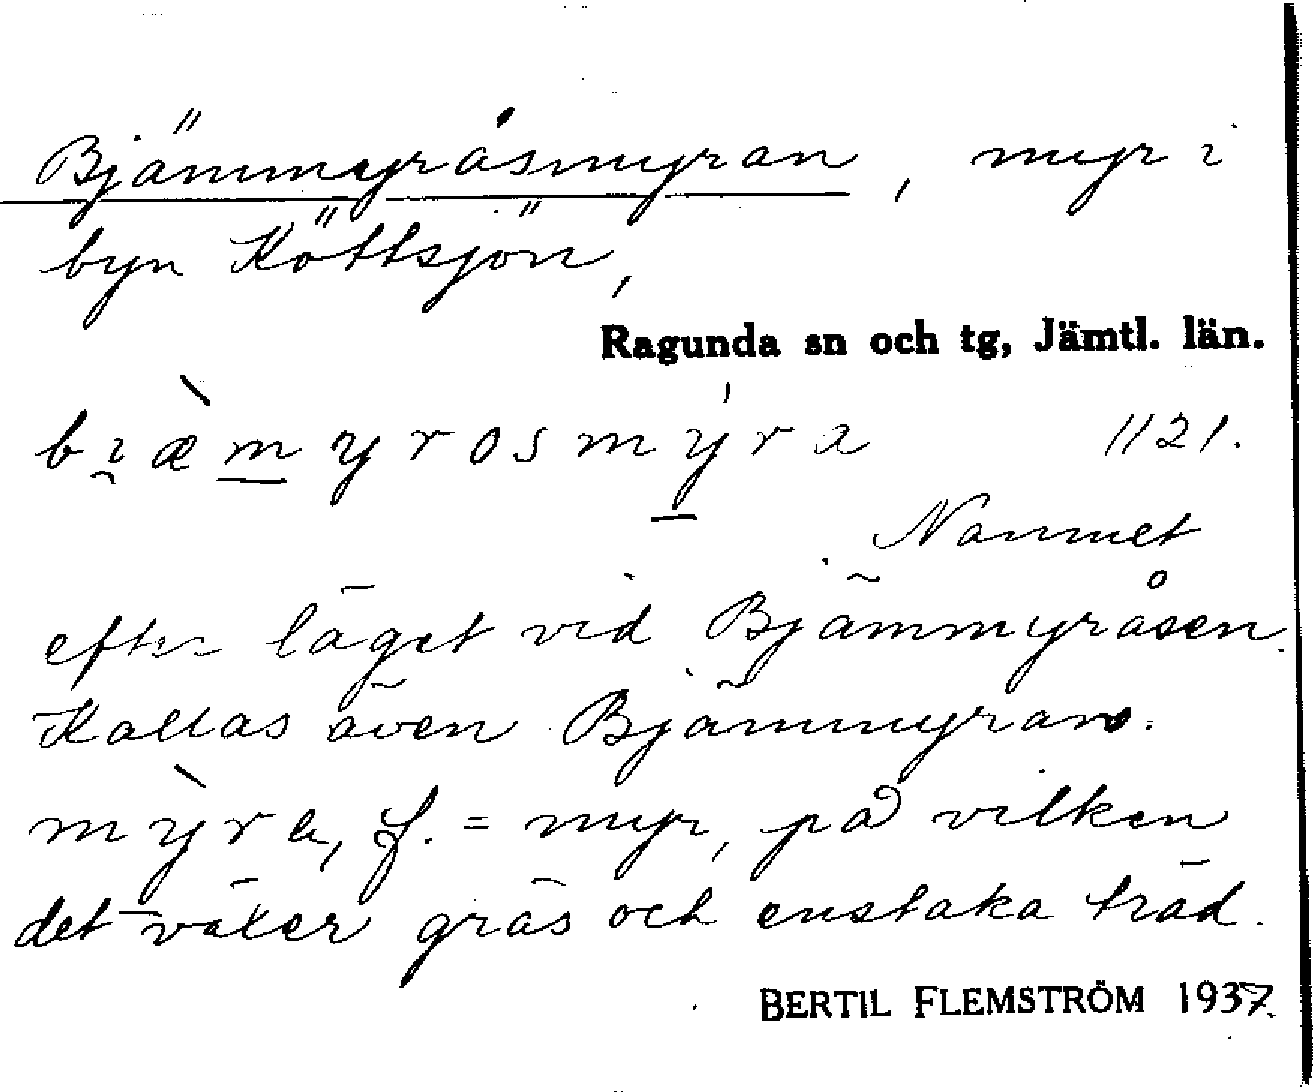 Bjämmyråsmyran, myr i
byn Köttsjön,
Ragunda sn och tg, Jämtl. län.
bi̯æ̀m̲yrosmý̲ra 1121.
Namnet
efter läget vid Bjämmyråsen.
Kallas även Bjämmyran.
mỳra, f. = myr, på vilken
det växer gräs och enstaka träd.
BERTIL FLEMSTRÖM 1937.